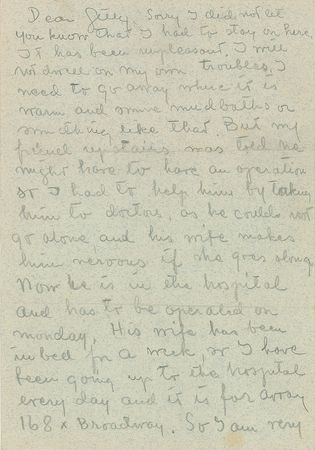 Dear Jitty, Sorry I did not let
you know that I had to stay on here.
It has been unpleasant. I will
not dwell on my own troubles. I
need to go away where it is
warm and some mudbaths or
something like that. But my
friend upstairs was told he
might have to have an operation
so I had to help him by taking
him to doctors, as he could not
go alone and his wife makes
him nervous if she goes along
Now he is in the hospital
and has to be operated on
monday. His wife has been
in bed for a week, so I have
been going up to the hospital
every day and it is far away
168 x Broadway. So I am very